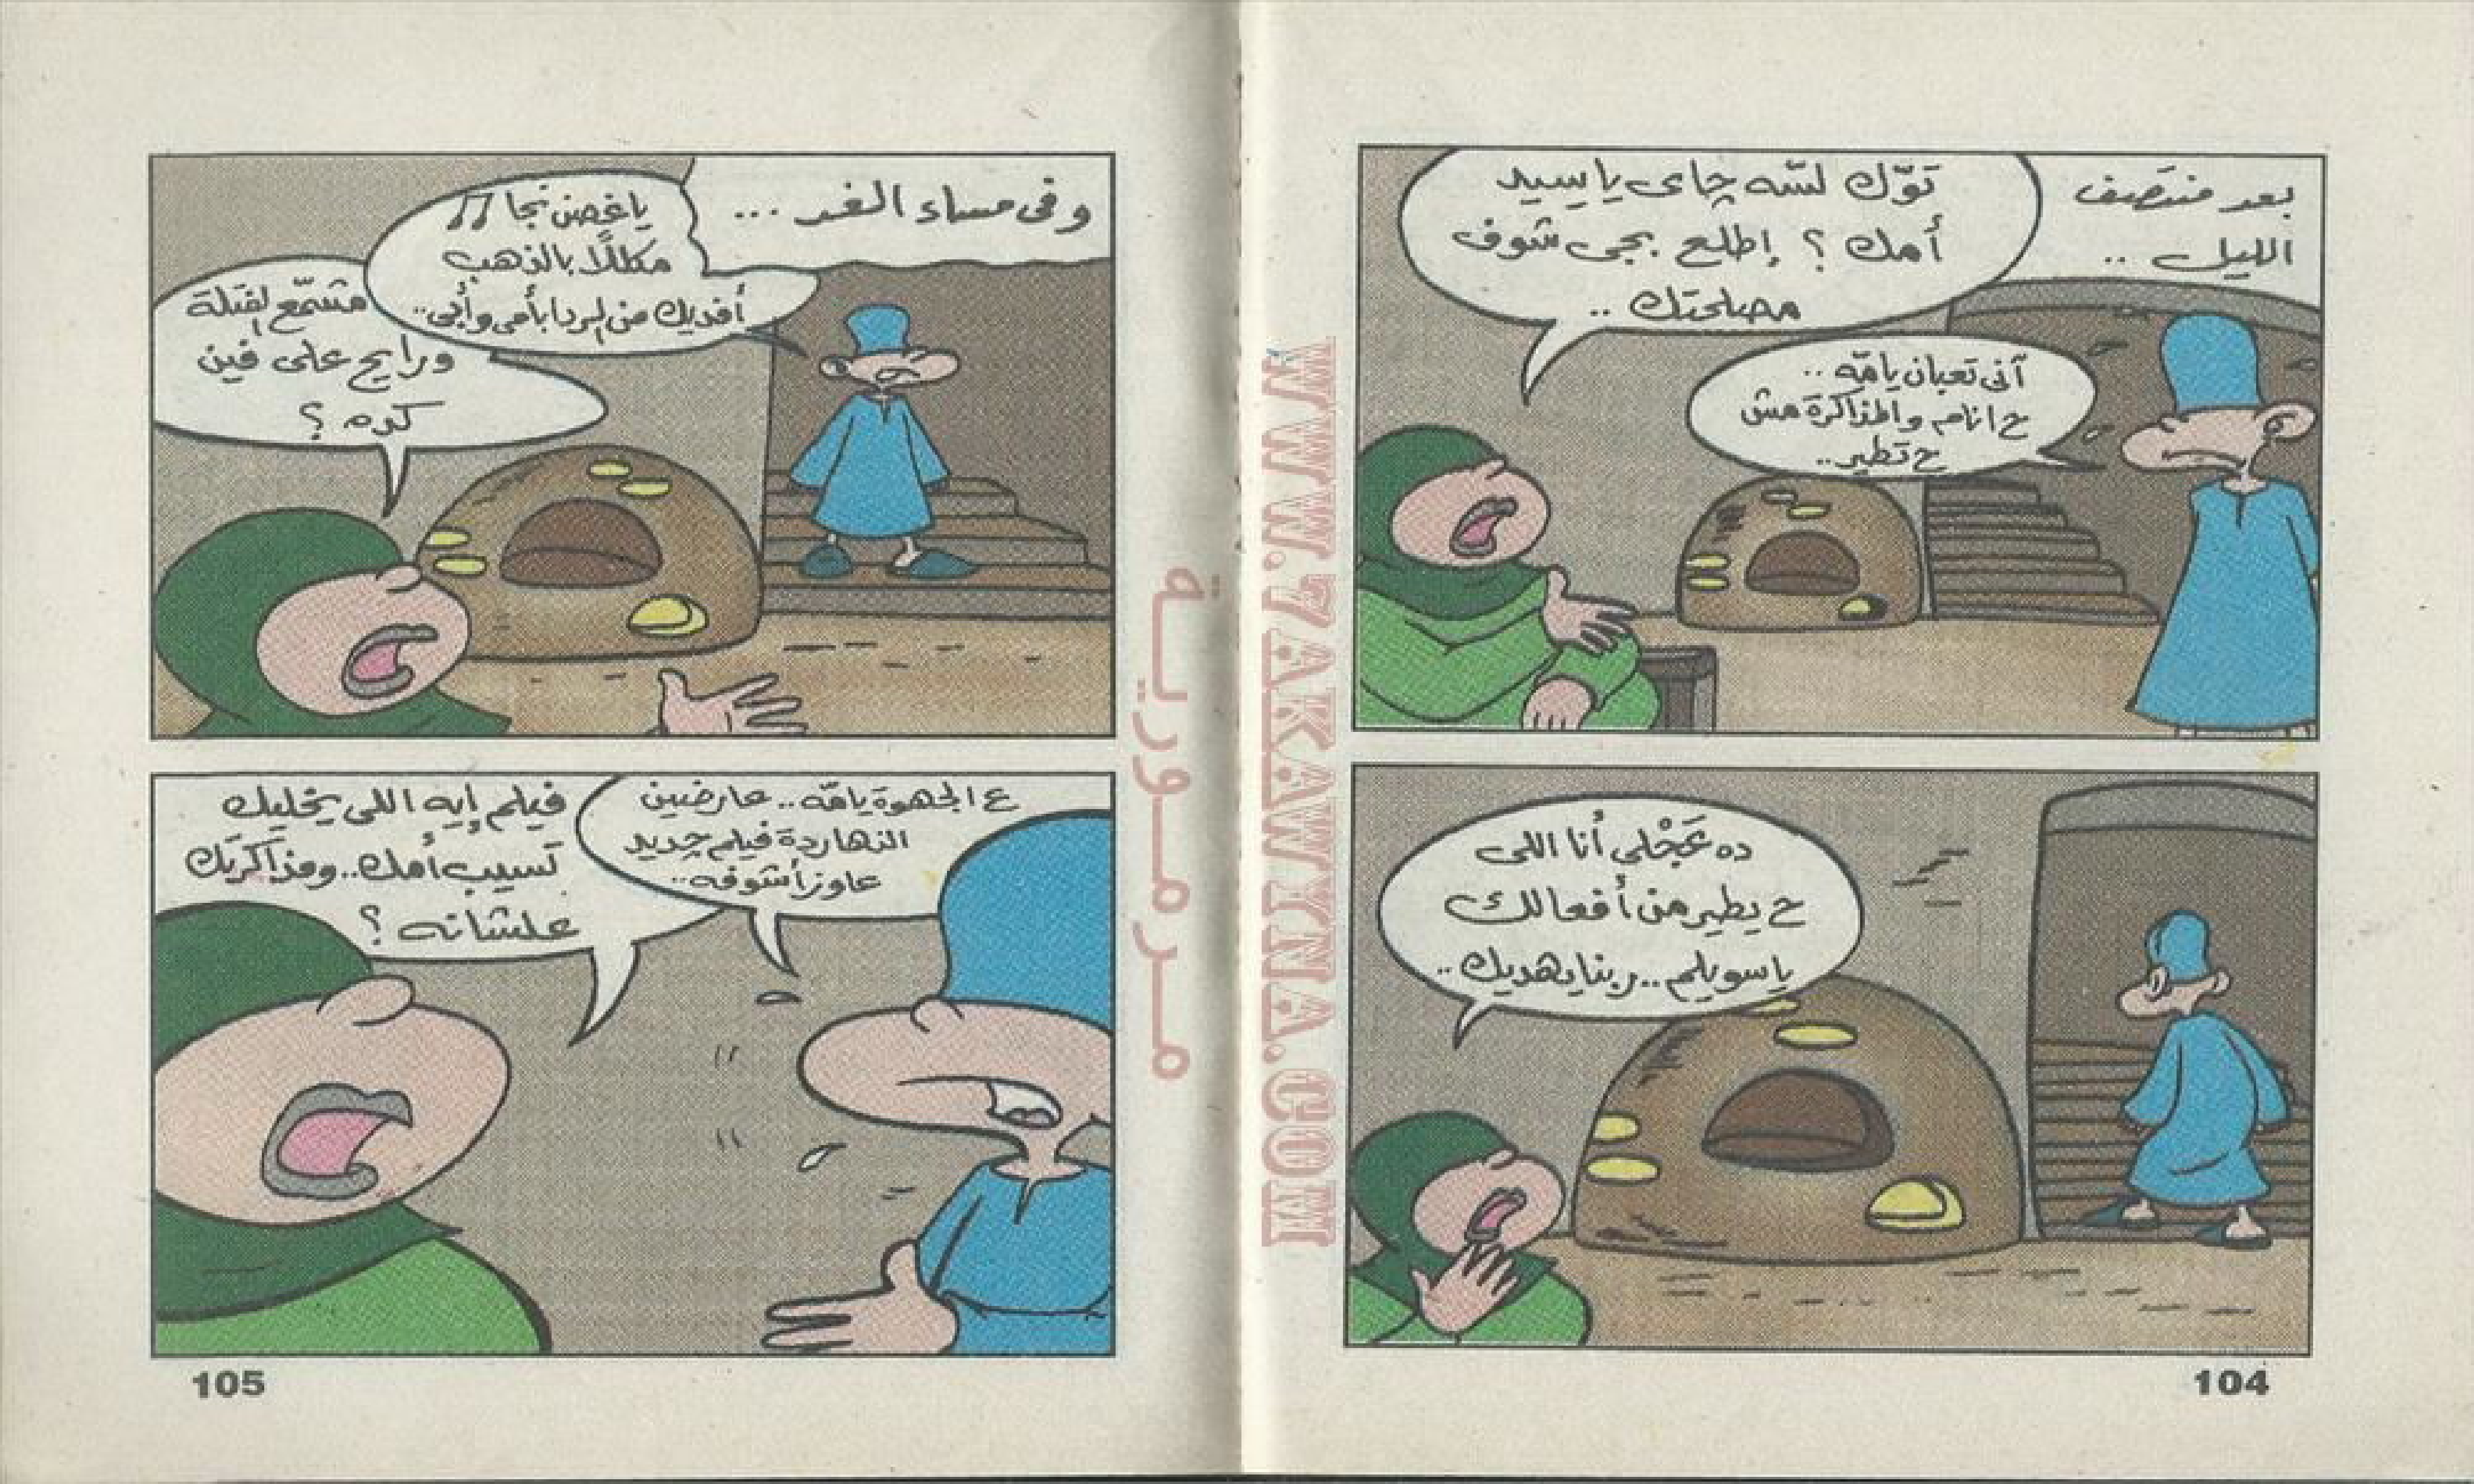 بعد منتصف
الليل ..
توّك لسّه چاى يا سيد
أمك ؟ إطلع بجى شوف
مصلحتك ..
آنى تعبان يامّه ..
ح انام والمذاكرة مش
ح تطير ..
ده عَجْلى أنا اللى
ح يطير من أفعالك
يا سويلم .. ربنا يهديك ..
104
وفى مساء الغد ...
ياغصن نجا
مكللًا بالذهب
أفديك من الردا بأمى وأبى ..
مشمّع الفتلة
ورايح على فين
كده ؟
ع الجهوة يامّه .. عارضين
النهاردة فيلم چديد
عاوز أشوفه ..
فيلم إيه اللى يخليك
تسيب أمك .. ومذاكرتك
علشانه ؟
105
مرمورية
WWW.7AKAWYNA.COM